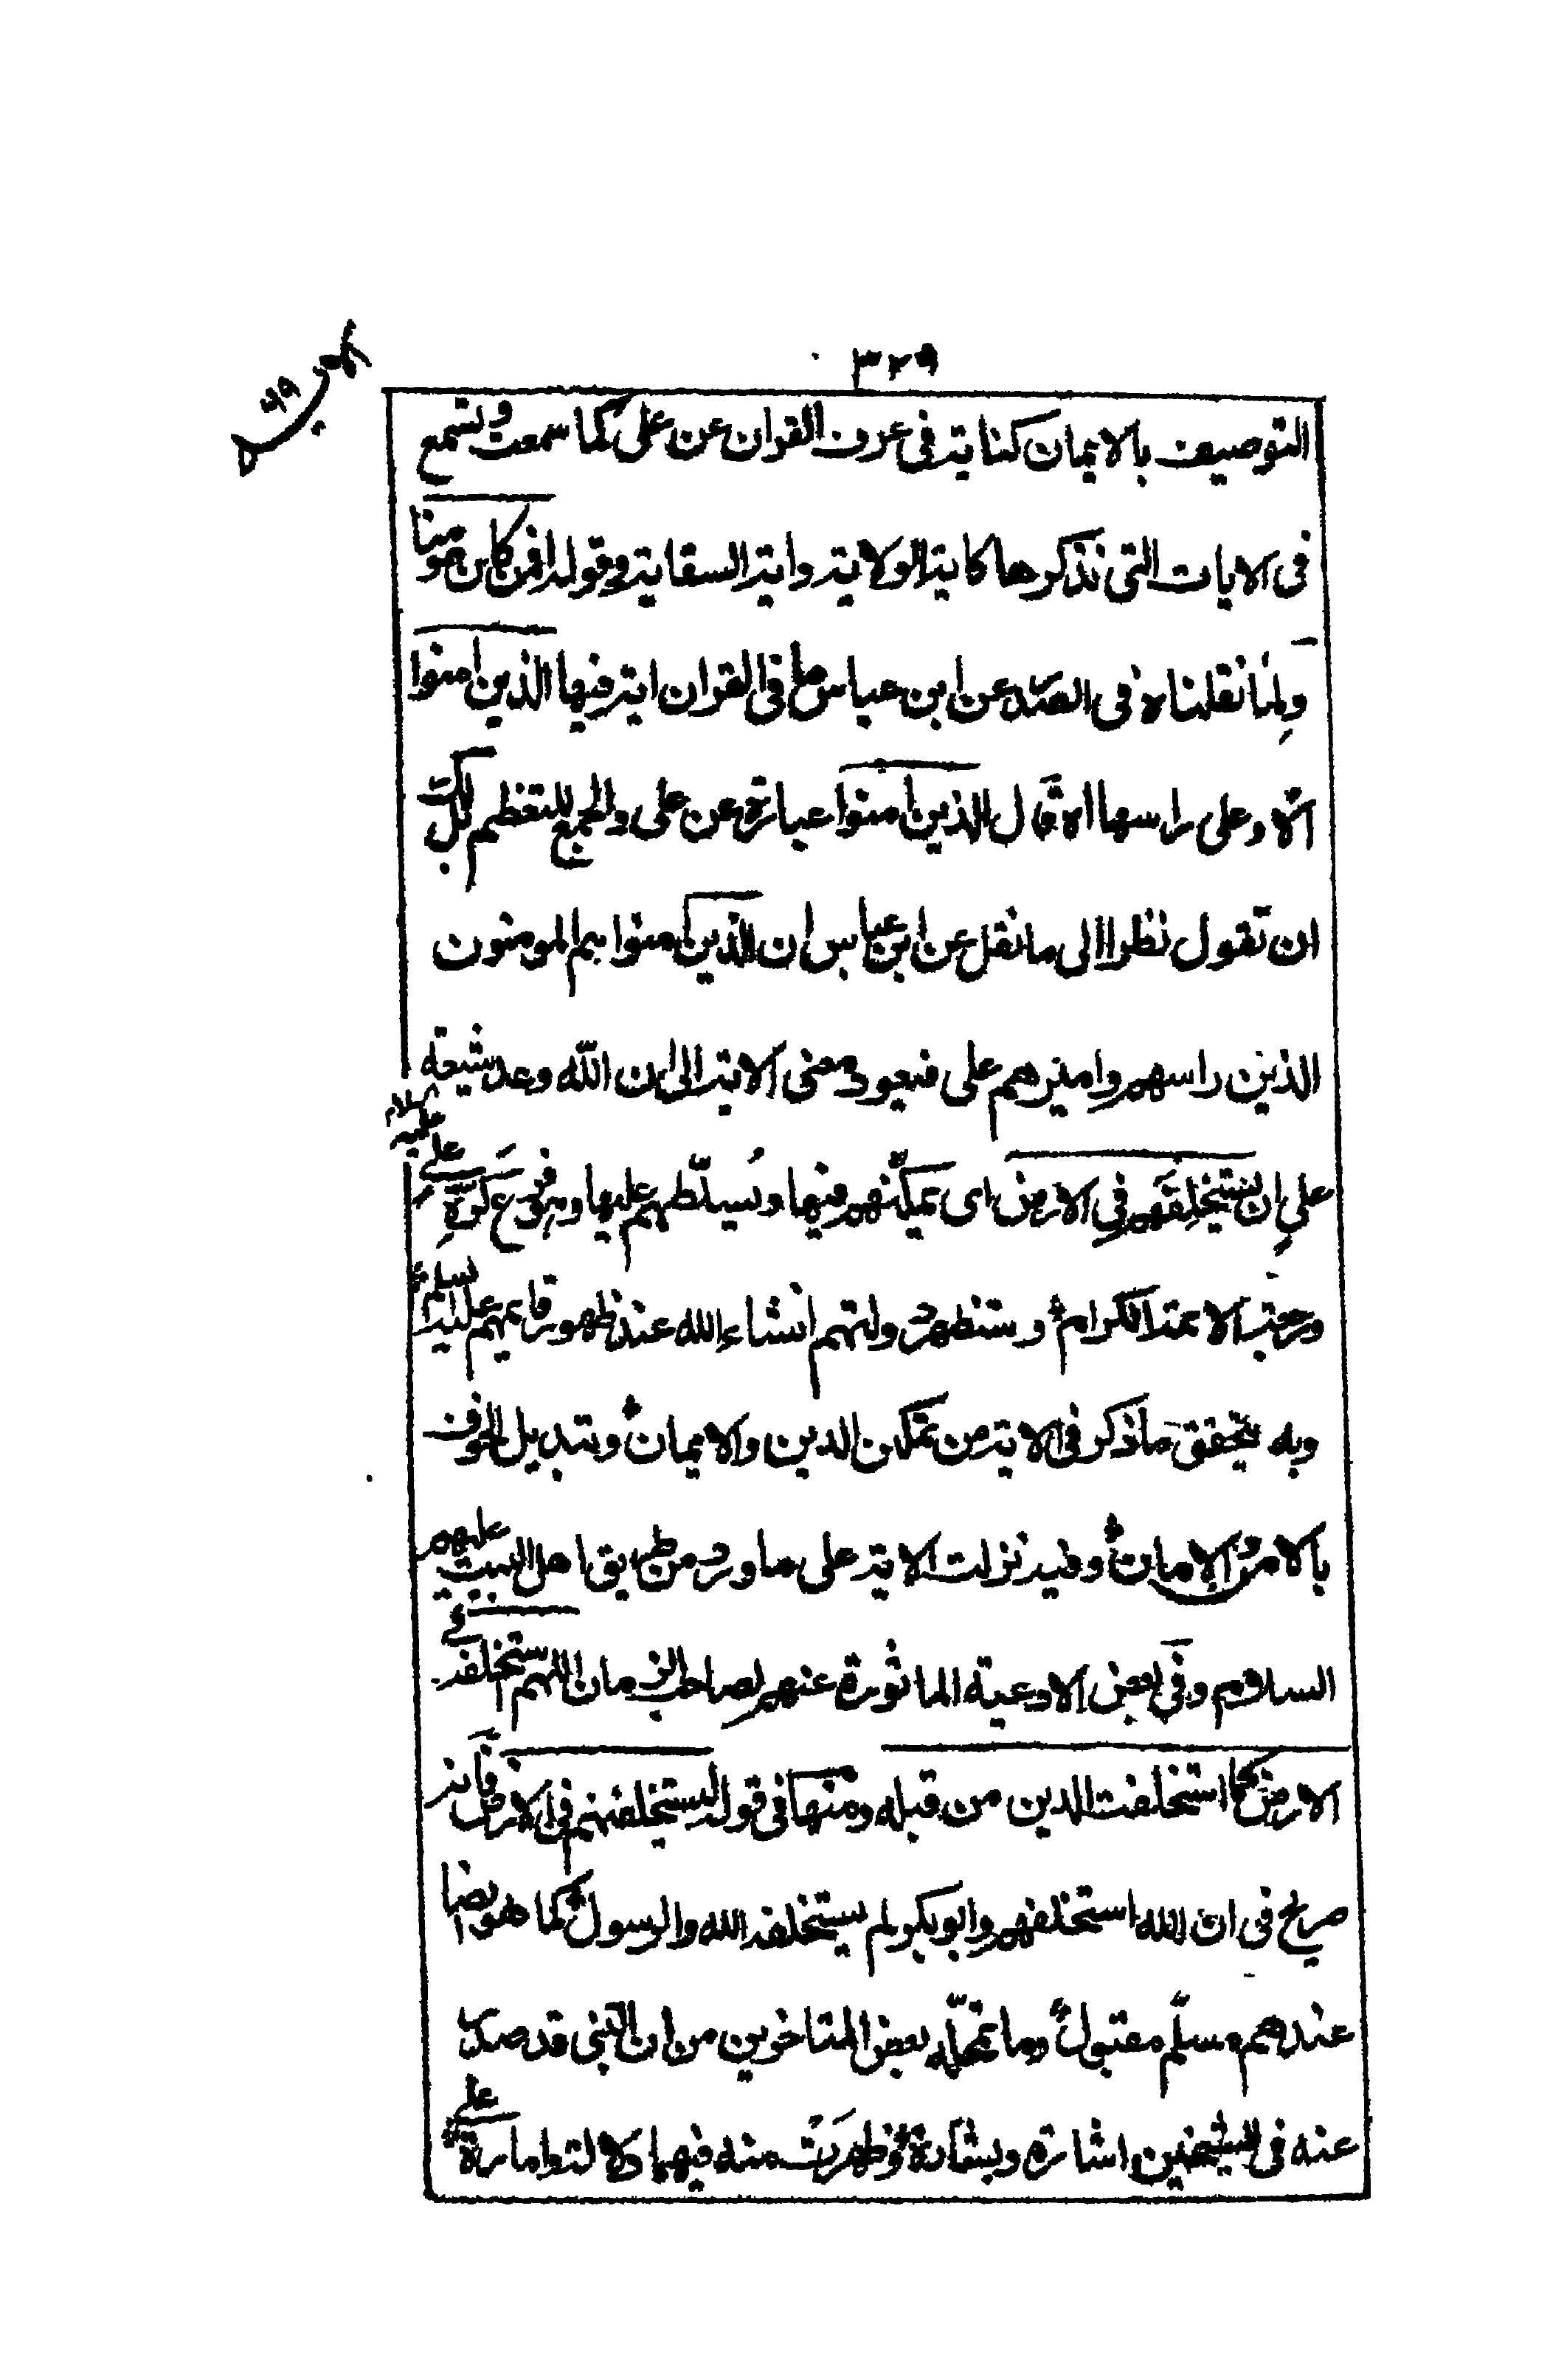 ٣٢٩
التوصيف بالايمان كناية في عرف القران عن علي كما سمعت وتسمع
في الايات التي نذكرها كاية الولاية واية السقاية وقوله افمن كان مومنا
ولما نقلناه في الصدر عن ابن عباس ما في القران اية فيها الذين امنوا
الا وعلي راسها اه قال الذين امنوا عبارة عن علي والجمع للتعظيم بل لك
ان تقول نظرا الى ما نقل عن ابن عباس ان الذين امنوا هم المومنون
الذين راسهم واميرهم علي فيعود معنى الاية الى ان الله وعد شيعة
علي ان يستخلفنهم في الارض اي يمكنهم فيها ويسلطهم عليها وهو في كرة علي
عليه السلام
ورجعة الائمة الكرام وستظهر دولتهم انشاء الله عند ظهور قايمهم عليه السلم
وبه يتحقق ما ذكر في الاية من تمكين الدين والايمان وتبديل الخوف
بالامن والامان وفيه نزلت الاية على ما ورد من طريق اهل البيت عليهم
السلام وفي بعض الادعية الماثورة عنهم لصاحب الزمان اللهم استخلفه في
الارض كما استخلفت الذين من قبله ومنها في قوله ليستخلفنهم في الارض فانه
صريح في ان الله استخلفهم وابو بكر لم يستخلفه الله والرسول كما هو ايضا
عندهم مسلم مقبول وما تمحله بعض المتاخرين من ان النبي قد صدر
عنه في الشيخين اشارة وبشارة وظهرت منه فيهما دلالة وامارة على